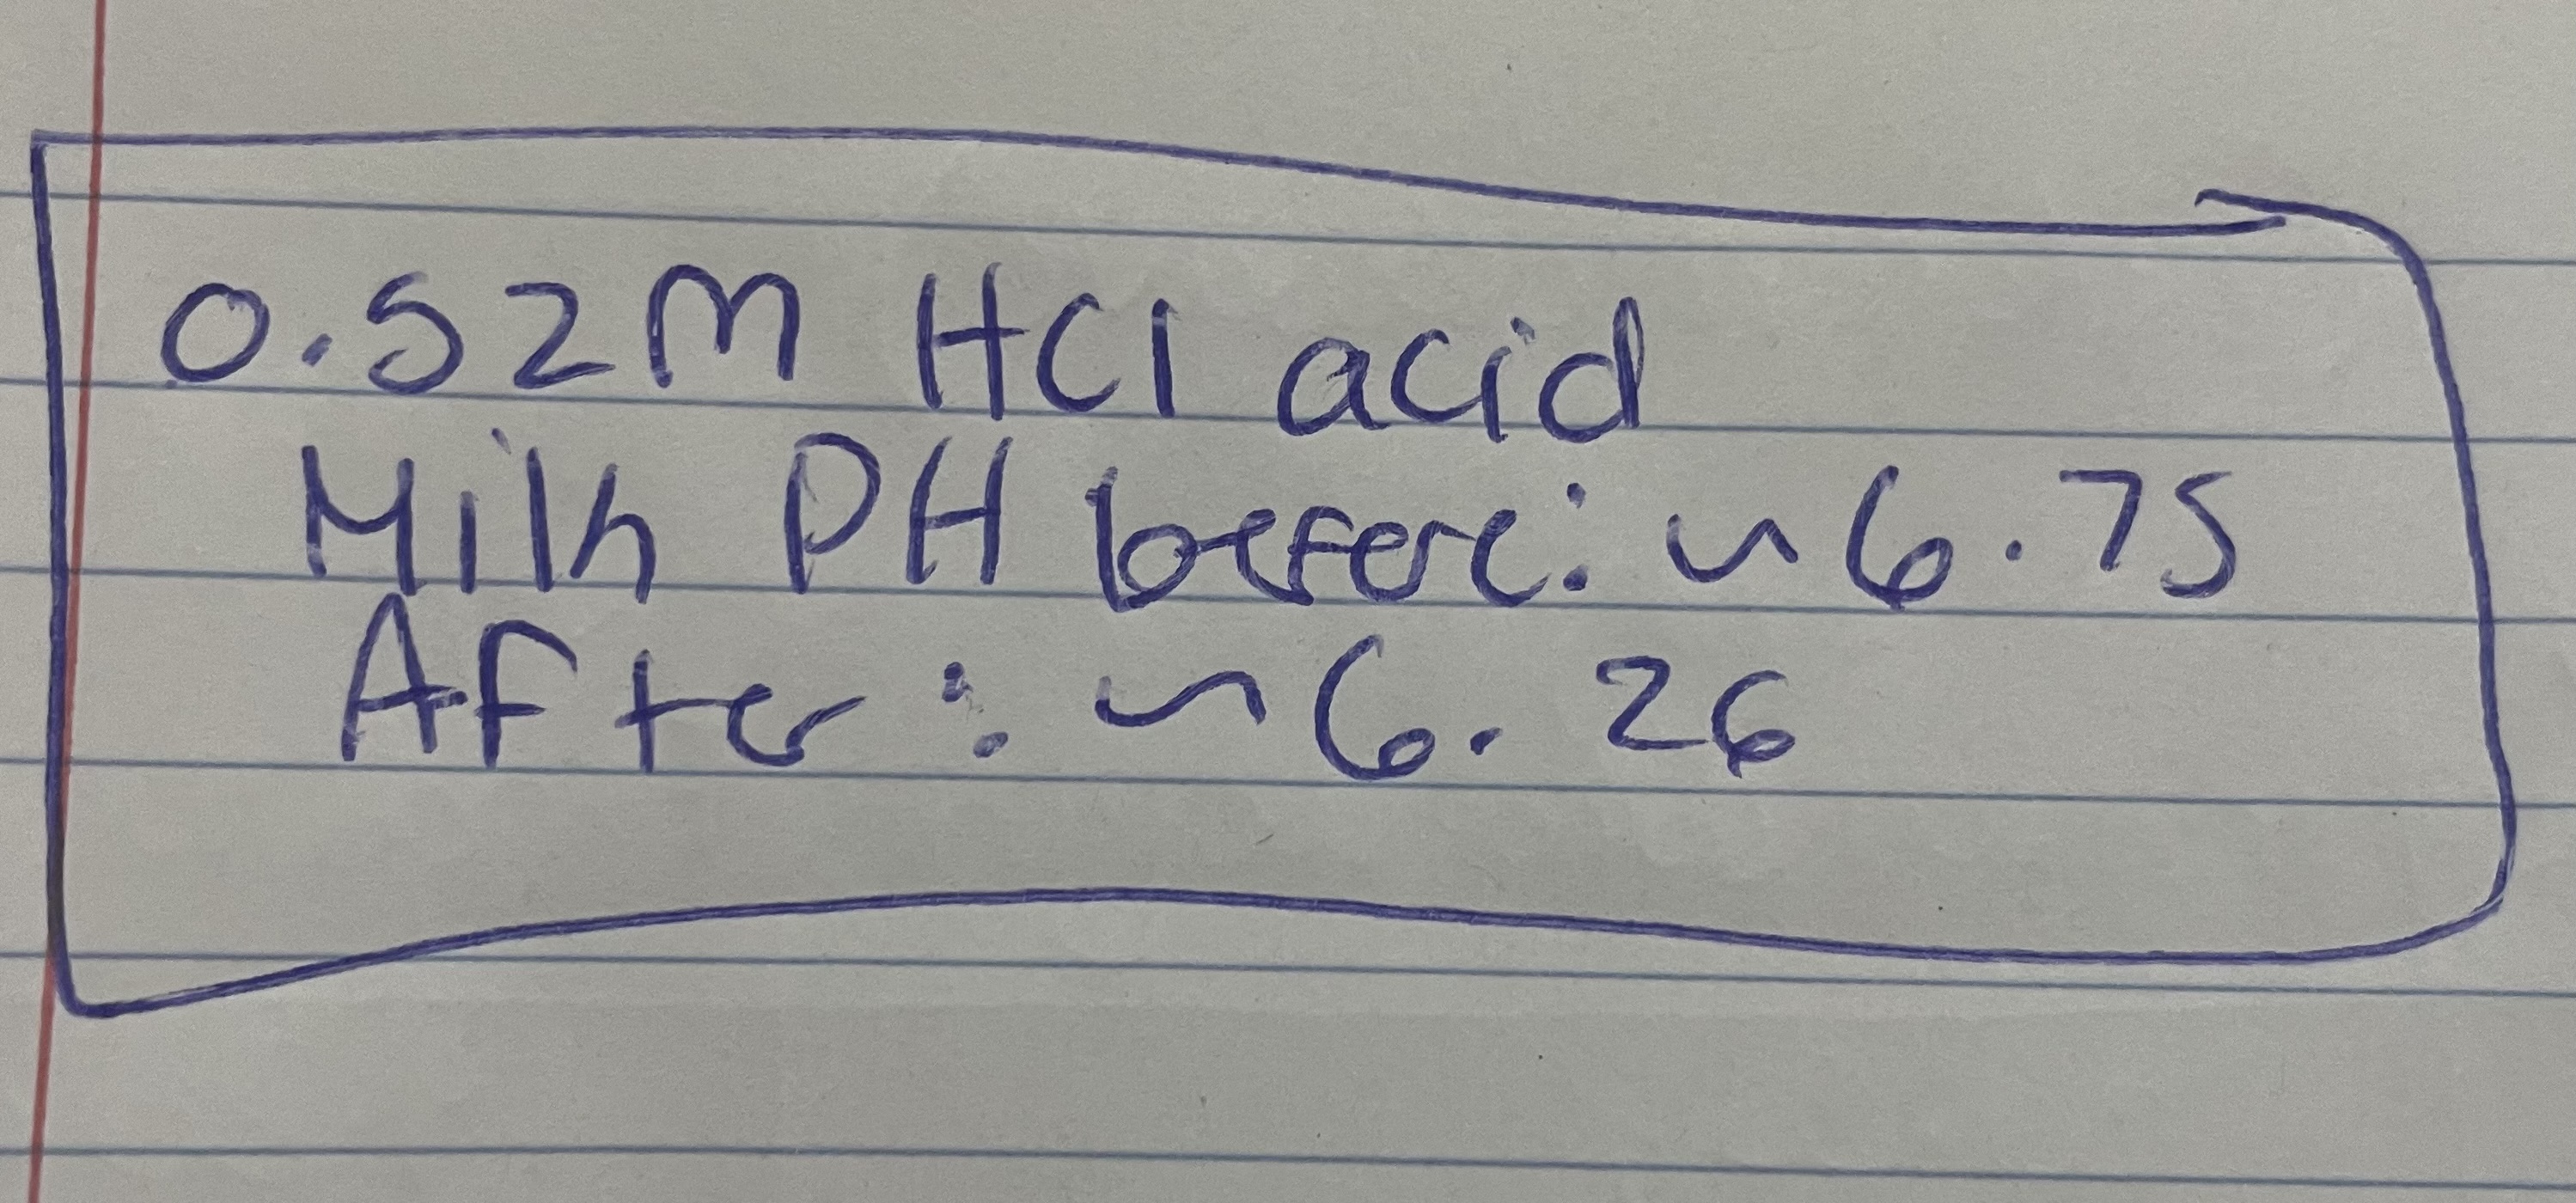 0.52M HCl acid
Milk PH before: ~ 6.75
After: ~ 6.26